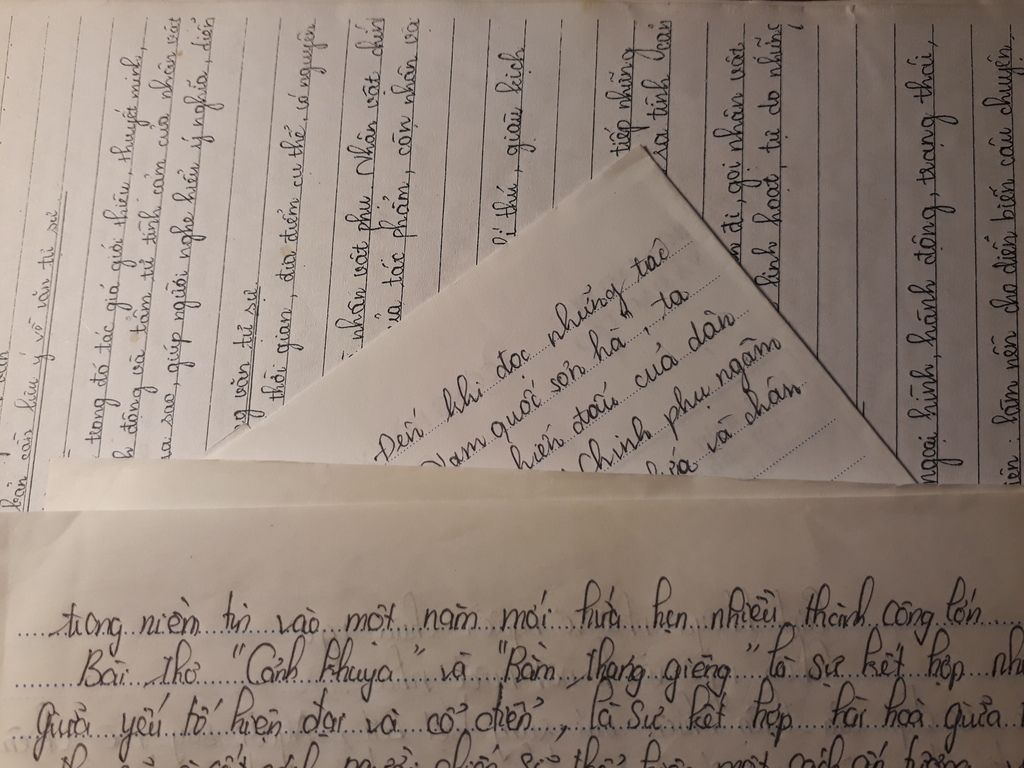 bản cần lưu ý về văn tự sự.
trong đó tác giả giới thiệu, thuyết minh,
h động và tâm tư tình cảm của nhân vật
ua sao, giúp người nghe hiểu ý nghĩa, diễn
g văn tự sự
thời gian, địa điểm cụ thể, có nguyên
nhân vật phụ. Nhân vật chín
ủa tác phẩm, còn nhân vâ
lí thú, giàu kịch
tiếp những
của tính cách
n đi, gọi nhân vật
linh hoạt, tự do những
ngoại hình, hành động, trạng thái,
iện, làm nên cho diễn biến câu chuyện,
Đến khi đọc những tác
Nam quốc sơn hà, ta
hiến đấu của dân
Chinh phụ ngâm
và chán
trong niền tin vào một năm mới hứa hẹn nhiều thành công lớn
Bài thơ "Cảnh khuya" và "Rằm tháng giêng" là sự kết hợp nh
giữa yếu tố hiện đại và cổ điển, là sự kết hợp hài hoà giữa